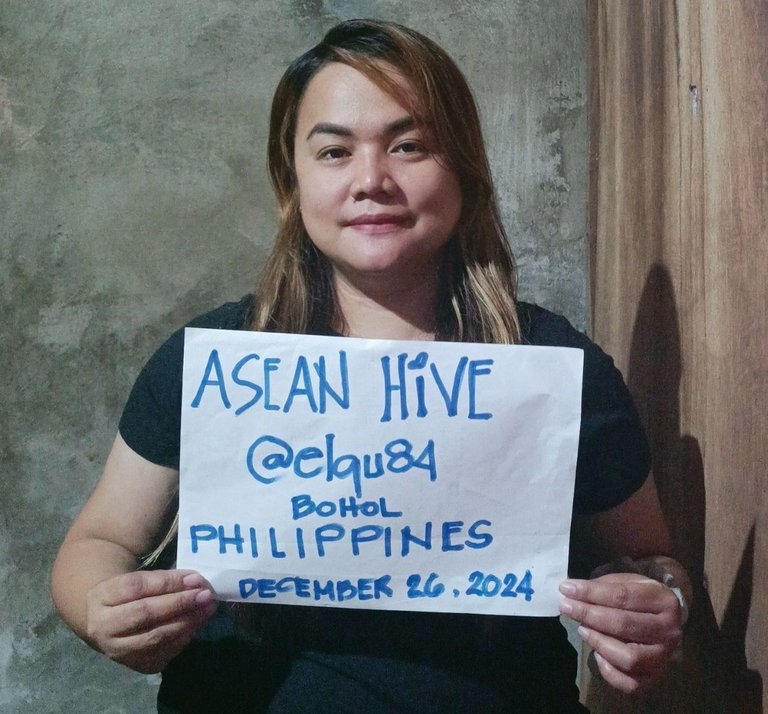 ASEAN HiVE
@elqu84
BOHOL
PHILIPPINES
DECEMBER 26, 2024